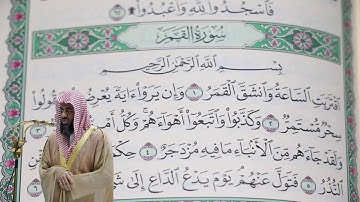 فَاسْجُدُوا لِلَّهِ وَاعْبُدُوا
سُورَةُ الْقَمَرِ
بِسْمِ اللَّهِ الرَّحْمَٰنِ الرَّحِيمِ
اقْتَرَبَتِ السَّاعَةُ وَانشَقَّ الْقَمَرُ ١ وَإِن يَرَوْا آيَةً يُعْرِضُوا وَيَقُولُوا
سِحْرٌ مُّسْتَمِرٌّ ٢ وَكَذَّبُوا وَاتَّبَعُوا أَهْوَاءَهُمْ وَكُلُّ أَمْرٍ ٣
وَلَقَدْ جَاءَهُم مِّنَ الْأَنبَاءِ مَا فِيهِ مُزْدَجَرٌ ٤ حِكْمَةٌ
النُّذُرُ ٥ فَتَوَلَّ عَنْهُمْ يَوْمَ يَدْعُ الدَّاعِ إِلَىٰ ٦